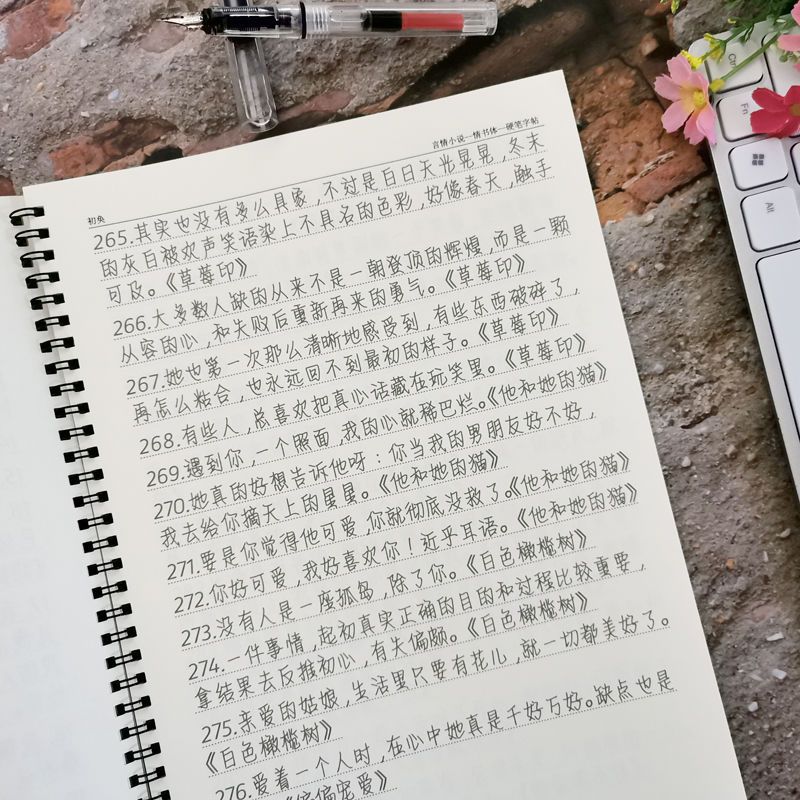 言情小说—情书体—硬笔字帖
初奂
265.其实也没有多么具象，不过是白日天光晃晃，冬末
的灰白被欢声笑语染上不具名的色彩，好像春天，触手
可及。《草莓印》
266.大多数人缺的从来不是一朝登顶的辉煌，而是一颗
从容的心，和失败后重新再来的勇气。《草莓印》
267.她也第一次那么清晰地感受到，有些东西破碎了，
再怎么粘合，也永远回不到最初的样子。《草莓印》
268.有些人，总喜欢把真心话藏在玩笑里。《草莓印》
269.遇到你，一个照面，我的心就稀巴烂。《他和她的猫》
270.她真的好想告诉他呀：你当我的男朋友好不好，
我去给你摘天上的星星。《他和她的猫》
271.要是你觉得他可爱，你就彻底没救了。《他和她的猫》
272.你好可爱，我好喜欢你！近乎耳语。《他和她的猫》
273.没有人是一座孤岛，除了你。《白色橄榄树》
274.一件事情，起初真实正确的目的和过程比较重要，
拿结果去反推初心，有失偏颇。《白色橄榄树》
275.亲爱的姑娘，生活里只要有花儿，就一切都美好了。
《白色橄榄树》
276.爱着一个人时，在心中她真是千好万好。缺点也是
《偏偏宠爱》
Ctrl
Fn
Alt